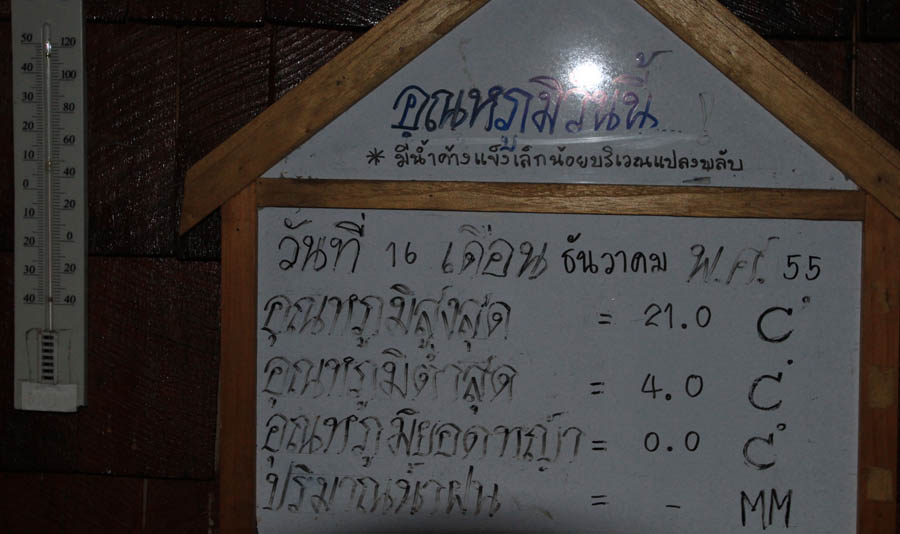 อุณหภูมิวันนี้....!
* มีน้ำค้างแข็งเล็กน้อยบริเวณแปลงพลับ
วันที่ 16 เดือน ธันวาคม พ.ศ. 55
อุณหภูมิสูงสุด = 21.0 C°
อุณหภูมิต่ำสุด = 4.0 C°
อุณหภูมิยอดหญ้า = 0.0 C°
ปริมาณน้ำฝน = - MM
50 120
40 100
30 80
20 60
10 40
0 20
10 0
20
30 20
40 40